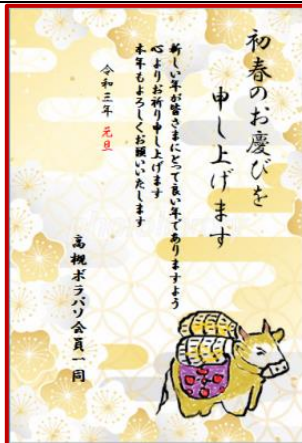 初春のお慶びを
申し上げます
新しい年が皆さまにとって良い年でありますよう
心よりお祈り申し上げます
本年もよろしくお願いいたします
令和三年 元旦
高槻ボラパソ会員一同